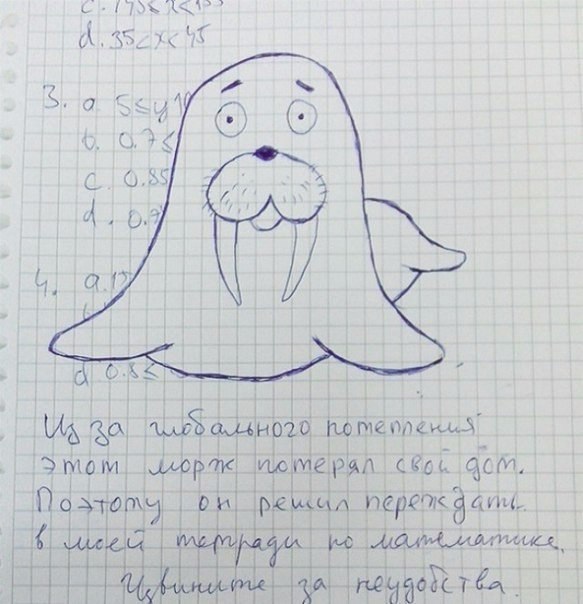 d. 35<x<45
3. a. 5≤y
b. 0.7≤
c. 0.85
d. 0.9
4. a.
d 0.8≤
Из за глобального потепления
этот морж потерял свой дом.
Поэтому он решил переждать
в моей тетради по математике.
Извините за неудобства.